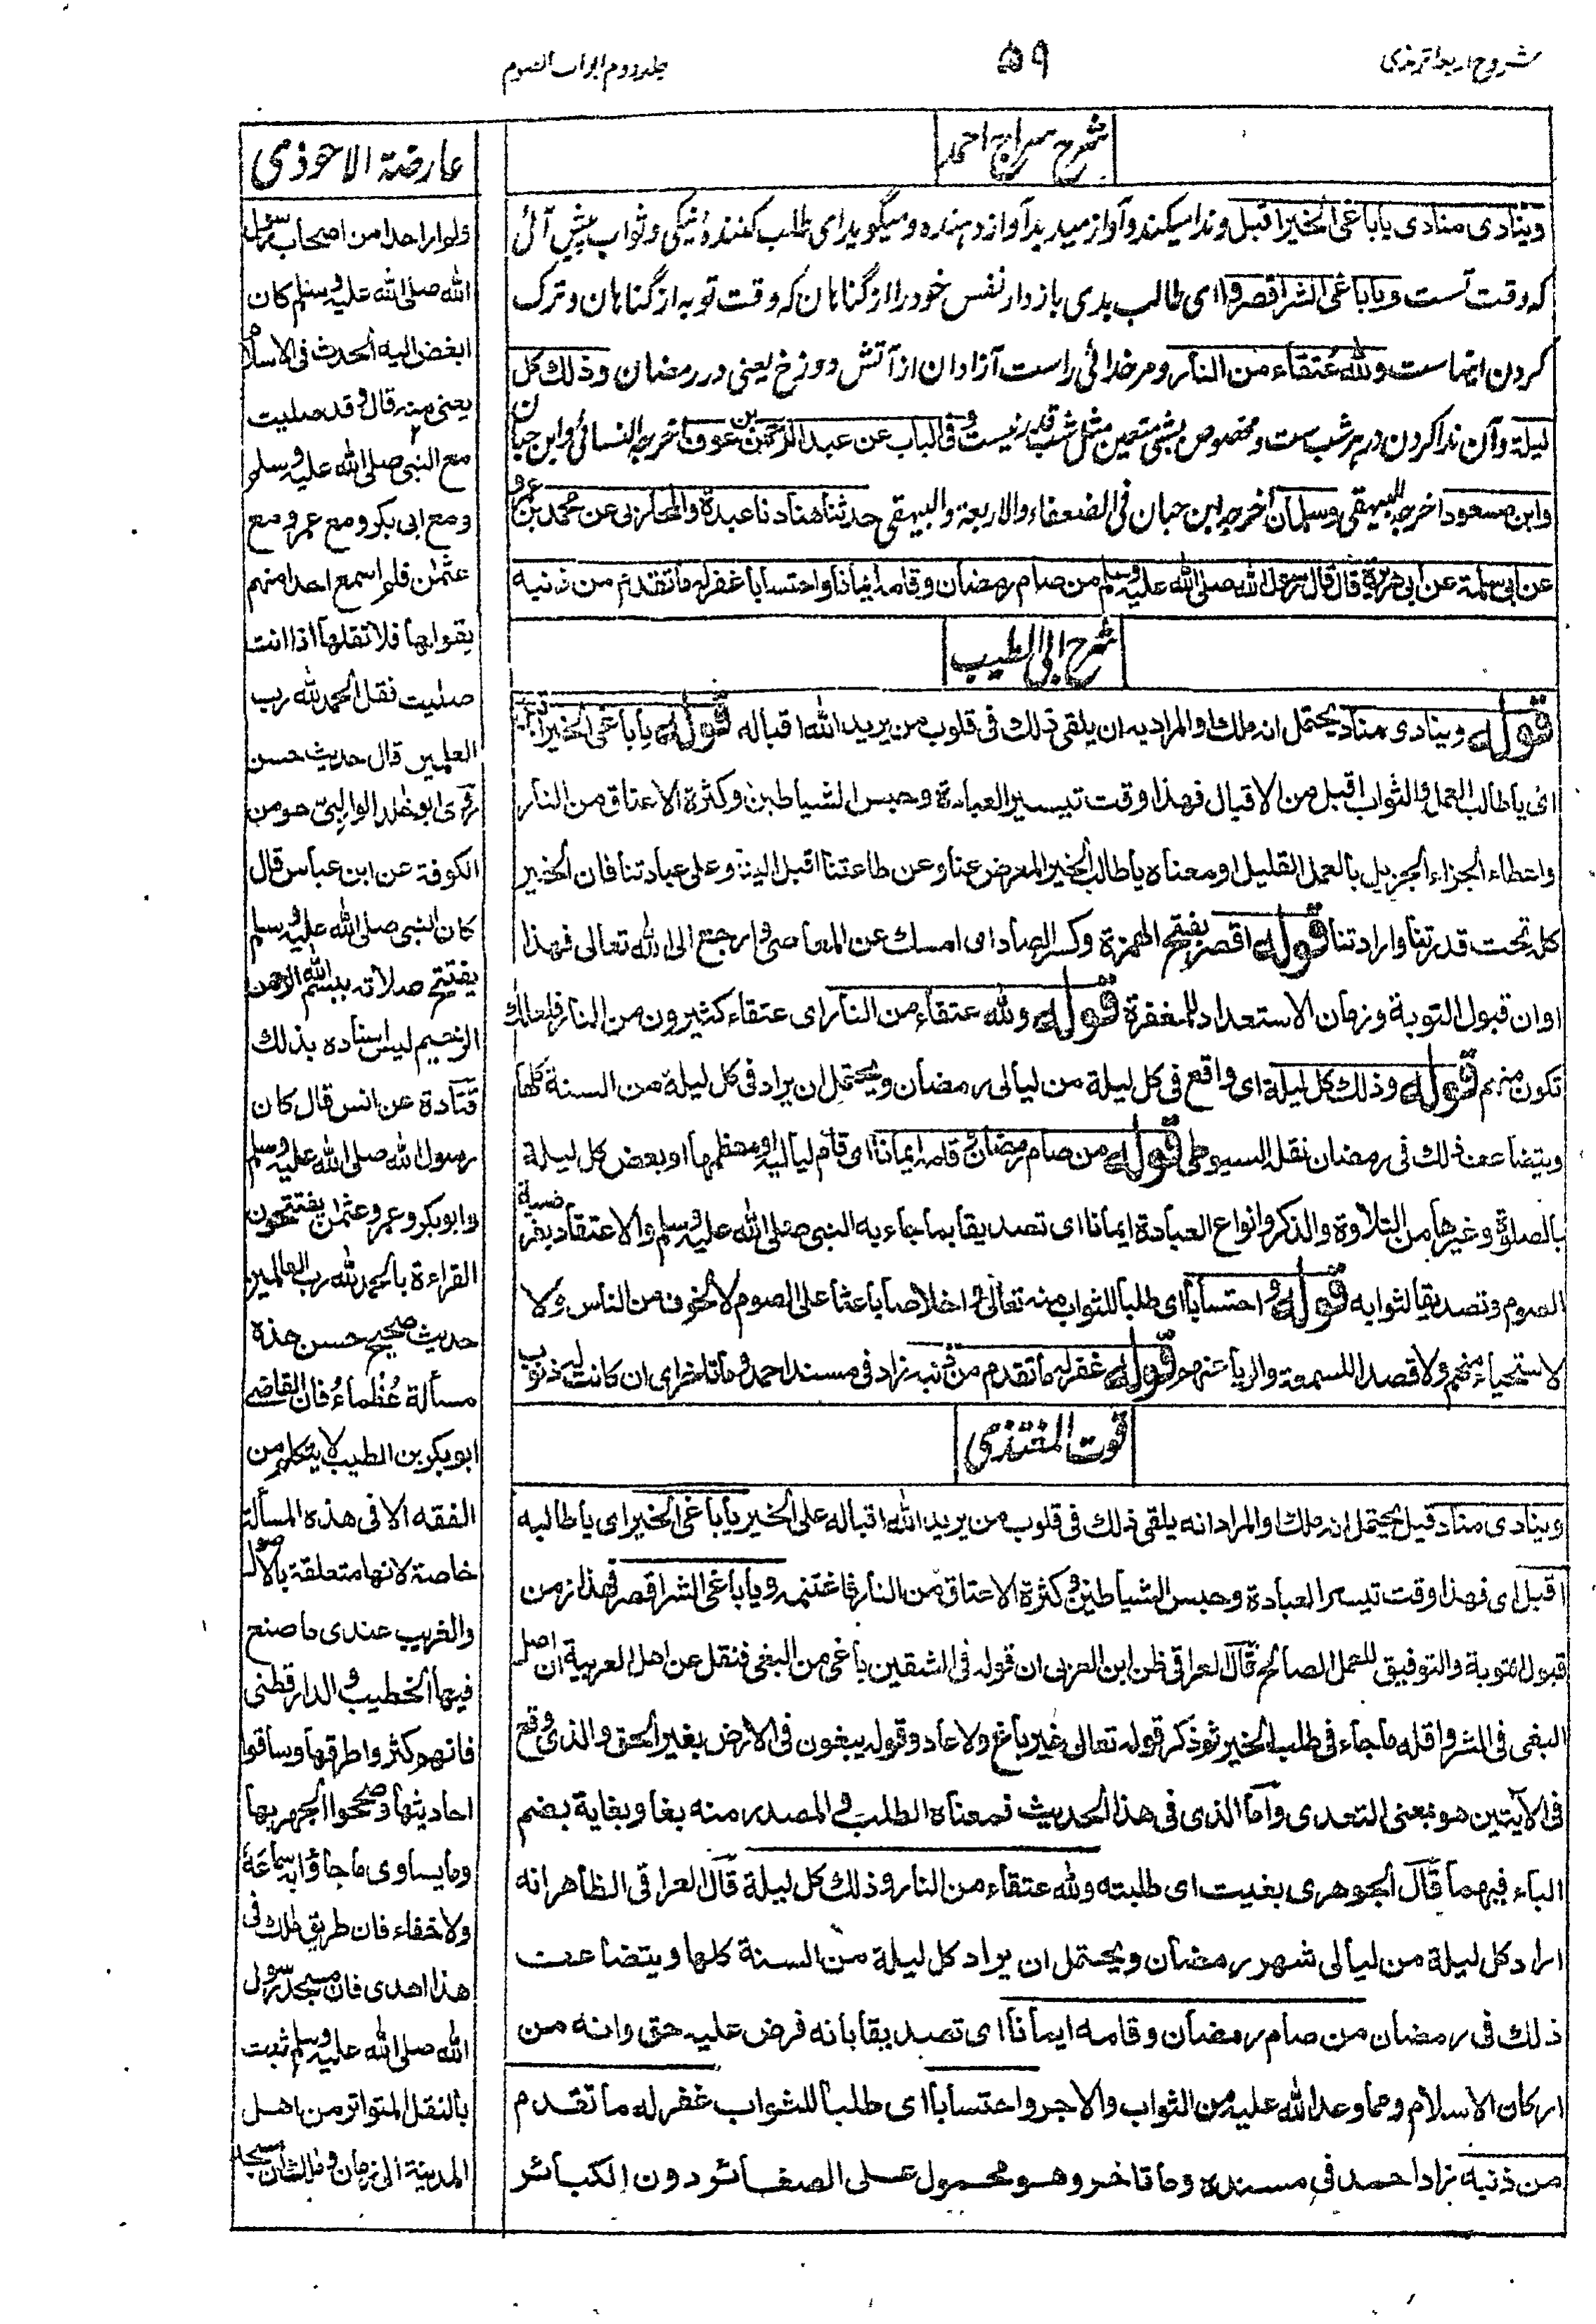 شروح اربعۂ ترمذی
۵۹
جلد دوم ابواب الصوم
شرح سراج احمد
وینادی منادی یا باغی الخیر اقبل وندا میکند و آواز میدهد آواز دهنده و میگوید ای طلب کنندۂ نیکی و ثواب پیش آئی
که وقت است و یا باغی الشر اقصر و ای طالب بدی باز دار نفس خود را از گناهان که وقت توبه از گناهان و ترک
کردن اینهاست ولله عتقاء من النار و مر خدائی راست آزادان از آتش دوزخ یعنی در رمضان وذلک کل
لیلة و آن ندا کردن در هر شب ست و مخصوص بشبی متعین مثل شب قدر نیست وفی الباب عن عبد الرحمن بن عوف اخرجه النسائی وابن حبان
وابن مسعود اخرجه البیهقی وسلمان اخرجه ابن حبان فی الضعفاء والاربعة والبیهقی حدثنا هناد نا عبدة والمحاربی عن محمد بن عمرو
عن ابی سلمة عن ابی هریرة قال قال رسول الله صلی الله علیه وسلم من صام رمضان وقامه ایمانا واحتسابا غفر له ما تقدم من ذنبه
شرح ابی الطیب
قوله وینادی مناد یحتمل انه ملك او المراد به ان یلقی ذلك فی قلوب من یرید الله اقباله قوله یا باغی الخیر اقبل
ای یا طالب العمل والثواب اقبل من الاقبال فهذا وقت تیسیر العبادة وحبس الشیاطین وکثرة الاعتاق من النار
واعطاء الجزاء الجزیل بالعمل القلیل او معناه یا طالب الخیر المعرض عنا وعن طاعتنا اقبل الینا وعلی عبادتنا فان الخیر
کله تحت قدرتنا وارادتنا قوله اقصر بفتح الهمزة وکسر الصاد ای امسك عن المعاصی وارجع الی الله تعالی فهذا
اوان قبول التوبة وزمان الاستعداد للمغفرة قوله ولله عتقاء من النار ای عتقاء کثیرون من النار فلعلك
تکون منهم قوله وذلك کل لیلة ای واقع فی کل لیلة من لیالی رمضان ویحتمل ان یراد فی کل لیلة من السنة کلها
ویتضاعف ذلك فی رمضان نقله السیوطی قوله من صام رمضان وقامه ایمانا ای قام لیالیه او معظمها او بعض کل لیلة
بالصلوة وغیرها من التلاوة والذکر وانواع العبادة ایمانا ای تصدیقا بما جاء به النبی صلی الله علیه وسلم والاعتقاد بفرضیة
الصوم وتصدیقا لثوابه قوله واحتسابا ای طلبا للثواب منه تعالی او اخلاصا باعثا علی الصوم لا لخوف من الناس ولا
لاستحیاء منهم ولا قصدا للسمعة والریاء عنهم قوله غفر له ما تقدم من ذنبه زاد فی مسند احمد وما تاخر ای ان کانت له ذنوب
قوت المغتذی
وینادی مناد قیل یحتمل انه ملك او المراد انه یلقی ذلك فی قلوب من یرید الله اقباله علی الخیر یا باغی الخیر ای یا طالبه
اقبل ای فهذا وقت تیسیر العبادة وحبس الشیاطین وکثرة الاعتاق من النار فاغتنمه ویا باغی الشر اقصر فهذا زمن
قبول التوبة والتوفیق للعمل الصالح قال العراقی ظن ابن العربی ان قوله فی الشقین باغی من البغی فنقل عن اهل العربیة ان اصل
البغی فی الشر واقله ما جاء فی طلب الخیر ثم ذکر قوله تعالی غیر باغ ولا عاد وقوله یبغون فی الارض بغیر الحق والذی وقع
فی الآیتین هو بمعنی التعدی واما الذی فی هذا الحدیث فمعناه الطلب والمصدر منه بغا وبغایة بضم
الباء فیهما قال الجوهری بغیت ای طلبته ولله عتقاء من النار وذلك کل لیلة قال العراقی الظاهر انه
اراد کل لیلة من لیالی شهر رمضان ویحتمل ان یراد کل لیلة من السنة کلها ویتضاعف
ذلك فی رمضان من صام رمضان وقامه ایمانا ای تصدیقا بانه فرض علیه حق وانه من
ارکان الاسلام ومما وعد الله علیه من الثواب والاجر واحتسابا ای طلبا للثواب غفر له ما تقدم
من ذنبه زاد احمد فی مسنده وما تاخر وهو محمول علی الصغائر دون الکبائر
عارضة الاحوذی
ولم ار احدا من اصحاب رسول
الله صلی الله علیه وسلم کان
ابغض الیه الحدث فی الاسلام
یعنی منه قال وقد صلیت
مع النبی صلی الله علیه وسلم
ومع ابی بکر ومع عمر ومع
عثمن فلم اسمع احدا منهم
یقولها فلا تقلها اذا انت
صلیت فقل الحمد لله رب
العلمین قال حدیث حسن
ابو خالد الوالبی هو من
الکوفة عن ابن عباس قال
کان النبی صلی الله علیه وسلم
یفتتح صلاته ببسم الله الرحمن
الرحیم لیس اسناده بذلك
قتادة عن انس قال کان
رسول الله صلی الله علیه وسلم
وابو بکر وعمر وعثمن یفتتحون
القراءة بالحمد لله رب العالمین
حدیث صحیح حسن هذه
مسألة عظماء فان القاضی
ابو بکر بن الطیب لا یتکلم من
الفقه الا فی هذه المسألة
خاصة لانها متعلقة بالاصول
والغریب عندی ما صنع
فیها الخطیب والدارقطنی
فانهم کثروا طرقها وساقوا
احادیثها وصححوا الجهر بها
وما یساوی ما جاؤا به سماعه
ولا خفاء فان طریق ملك فی
هذا اهدی فان مسجد رسول
الله صلی الله علیه وسلم ثبت
بالنقل المتواتر من اهل
المدینة الی زمان مسجد